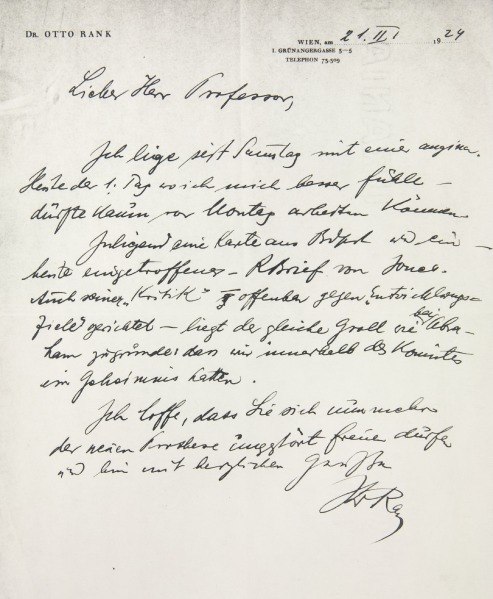 DR. OTTO RANK
WIEN, am 21. III 1924
I. GRÜNANGERGASSE 3–5
TELEPHON 75-5-09
Lieber Herr Professor,
Ich liege seit Samstag mit einer angina.
Heute der 1. Tag wo ich mich besser fühle –
dürfte kaum vor Montag arbeiten können
Inliegend eine Karte aus Bdpst und ein –
heute eingetroffener – RBrief von Jones.
Auch seiner „Kritik“ offenbar gegen „Entwicklungs-
Ziele“ gerichtet – liegt der gleiche Groll wie bei Abra-
ham zugrunde: dass wir innerhalb des Komitees
ein Geheimnis hatten.
Ich hoffe, dass Sie sich nunmehr
der neuen Prothese ungestört freuen dürfen
und bin mit herzlichen Grüßen
Ihr Rank